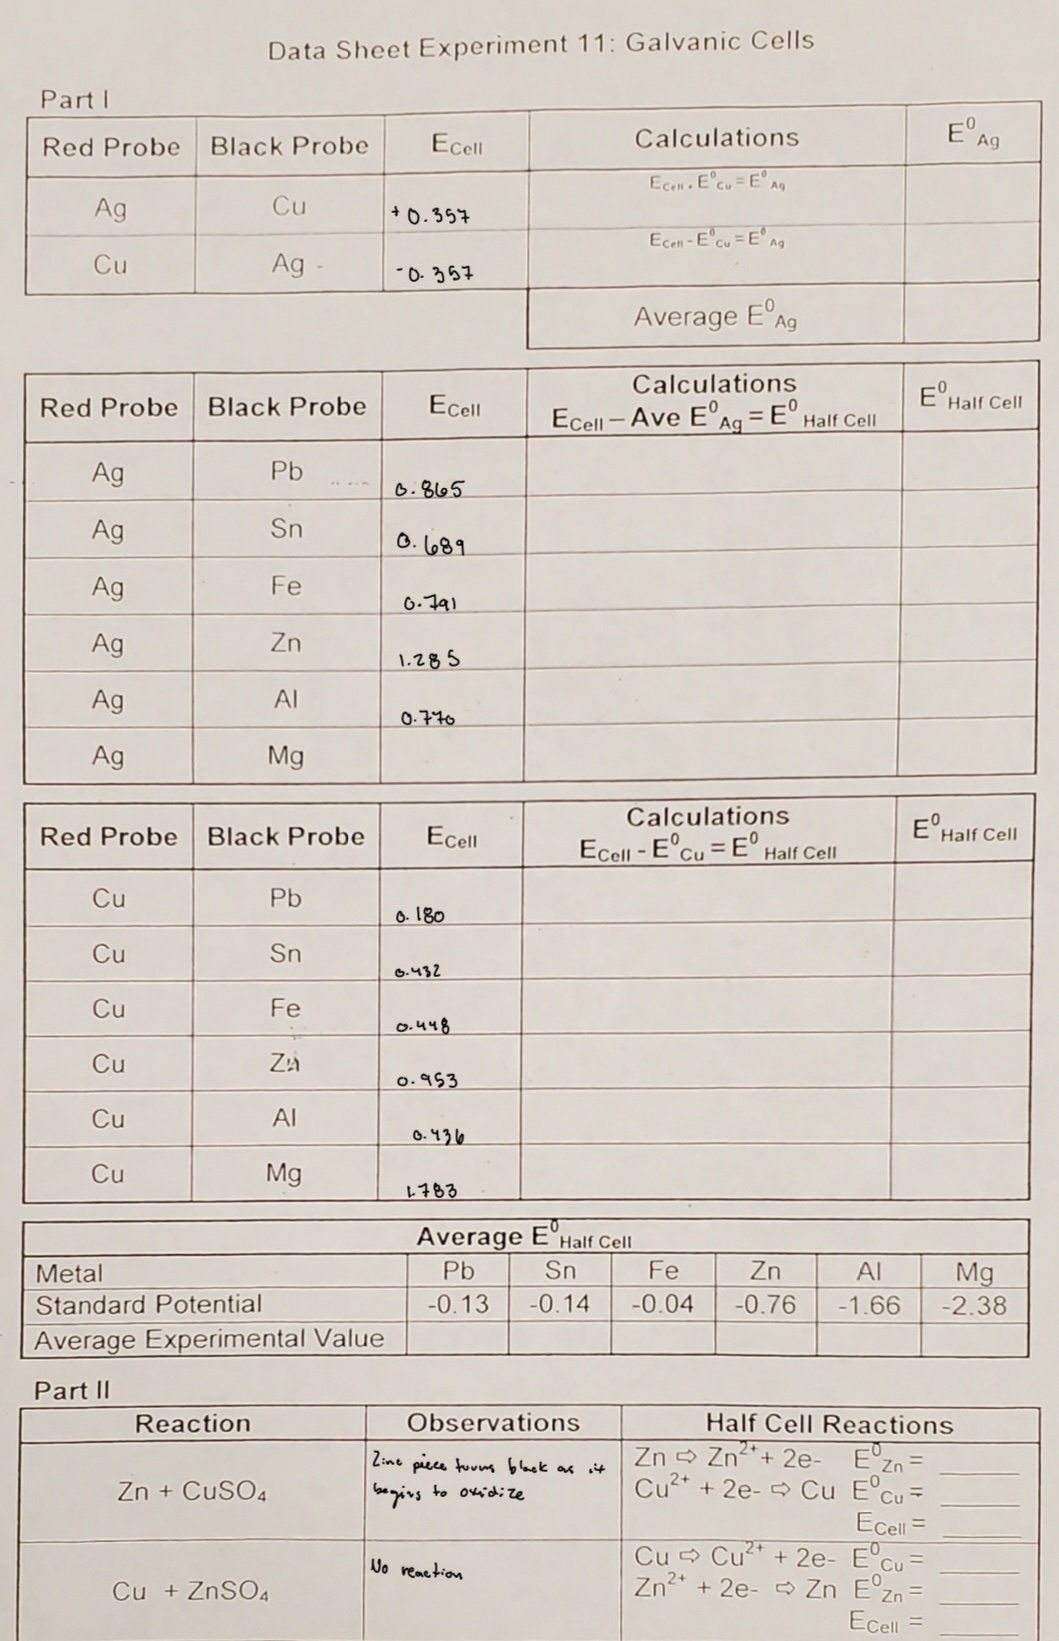 Data Sheet Experiment 11: Galvanic Cells
Part I
Red Probe Black Probe E Cell Calculations E⁰ Ag
Ag Cu +0.357 E Cell + E⁰ Cu = E⁰ Ag
Cu Ag -0.357 E Cell - E⁰ Cu = E⁰ Ag
Average E⁰ Ag
Red Probe Black Probe E Cell Calculations E Cell – Ave E⁰ Ag = E⁰ Half Cell E⁰ Half Cell
Ag Pb 0.865
Ag Sn 0.689
Ag Fe 0.791
Ag Zn 1.285
Ag Al 0.770
Ag Mg
Red Probe Black Probe E Cell Calculations E Cell - E⁰ Cu = E⁰ Half Cell E⁰ Half Cell
Cu Pb 0.180
Cu Sn 0.432
Cu Fe 0.448
Cu Zn 0.953
Cu Al 0.436
Cu Mg 1.783
Average E⁰ Half Cell
Metal Pb Sn Fe Zn Al Mg
Standard Potential -0.13 -0.14 -0.04 -0.76 -1.66 -2.38
Average Experimental Value
Part II
Reaction Observations Half Cell Reactions
Zn + CuSO₄ Zinc piece turns black as it begins to oxidize
Zn ⇨ Zn²⁺ + 2e- E⁰ Zn = ______
Cu²⁺ + 2e- ⇨ Cu E⁰ Cu = ______
E Cell = ______
Cu + ZnSO₄ No reaction
Cu ⇨ Cu²⁺ + 2e- E⁰ Cu = ______
Zn²⁺ + 2e- ⇨ Zn E⁰ Zn = ______
E Cell = ______